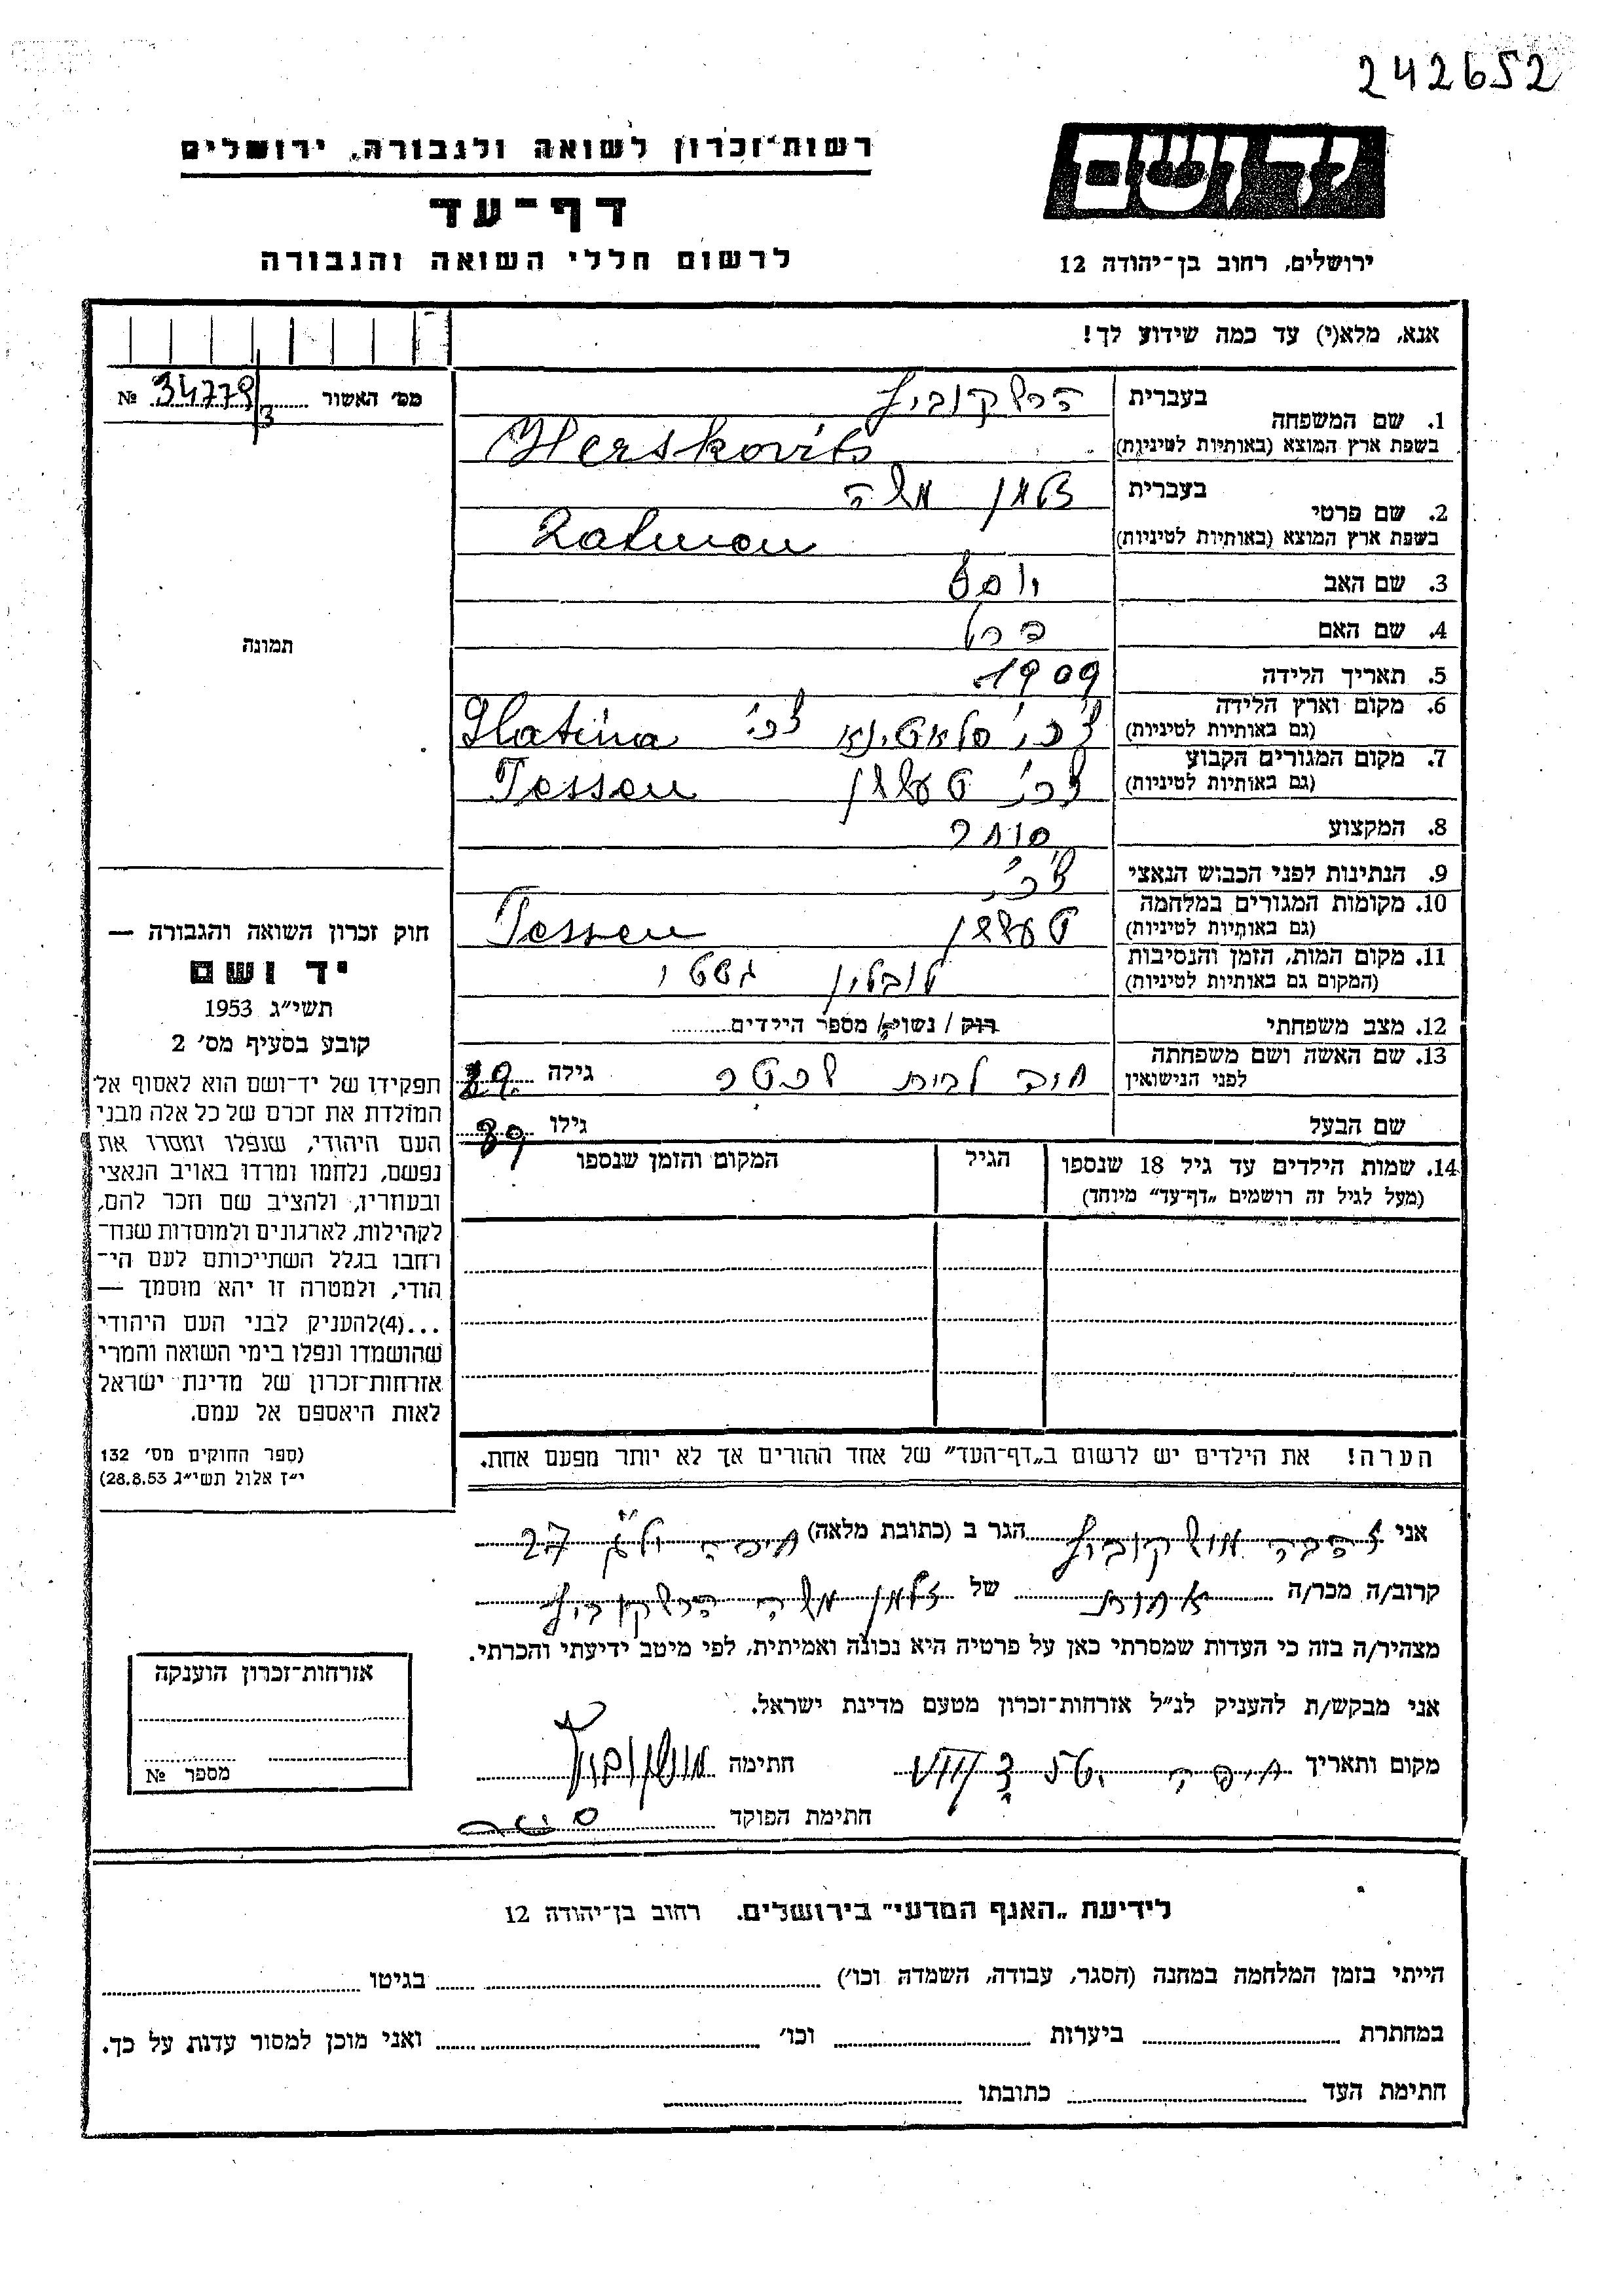 242652
יד ושם
ירושלים, רחוב בן־יהודה 12
רשות־זכרון לשואה ולגבורה, ירושלים
דף־עד
לרשום חללי השואה והגבורה
אנא, מלא(י) עד כמה שידוע לך!
מס׳ האשור 34779/3 №
1. שם המשפחה
בעברית הרשקוביץ
בשפת ארץ המוצא (באותיות לטיניות) Herskovits
2. שם פרטי
בעברית זלמן משה
בשפת ארץ המוצא (באותיות לטיניות) Zalmen
3. שם האב יוסף
4. שם האם ברל
5. תאריך הלידה 1909
6. מקום וארץ הלידה
(גם באותיות לטיניות) צ׳כי סלאטינא צכ׳ Slatina
7. מקום המגורים הקבוע
(גם באותיות לטיניות) צכ׳ טעששן Tessen
8. המקצוע סוחר
9. הנתינות לפני הכבוש הנאצי צ׳כ׳
10. מקומות המגורים במלחמה
(גם באותיות לטיניות) טעששן Tessen
11. מקום המות, הזמן והנסיבות
(המקום גם באותיות לטיניות) לובלין
12. מצב משפחתי רוק / נשוי / מספר הילדים
13. שם האשה ושם משפחתה
לפני הנישואין לבית גילה 29
שם הבעל גילו 39
14. שמות הילדים עד גיל 18 שנספו
(מעל לגיל זה רושמים „דף־עד” מיוחד)
הגיל
המקום והזמן שנספו
הערה! את הילדים יש לרשום ב„דף־העד” של אחד ההורים אך לא יותר מפעם אחת.
תמונה
חוק זכרון השואה והגבורה —
יד ושם
תשי״ג 1953
קובע בסעיף מס׳ 2
תפקידו של יד־ושם הוא לאסוף אל
המולדת את זכרם של כל אלה מבני
העם היהודי, שנפלו ומסרו את
נפשם, נלחמו ומרדו באויב הנאצי
ובעוזריו, ולהציב שם וזכר להם,
לקהילות, לארגונים ולמוסדות שנח־
רחבו בגלל השתייכותם לעם הי־
הודי, ולמטרה זו יהא מוסמך —
...(4)להעניק לבני העם היהודי
שהושמדו ונפלו בימי השואה והמרי
אזרחות־זכרון של מדינת ישראל
לאות היאספם אל עמם.
(ספר החוקים מס׳ 132
י״ז אלול תשי״ג 28.8.53)
אני הגר ב (כתובת מלאה) חיפה 27
קרוב/ה מכר/ה אחות של זלמן משה הרשקוביץ
מצהיר/ה בזה כי העדות שמסרתי כאן על פרטיה היא נכונה ואמיתית, לפי מיטב ידיעתי והכרתי.
אני מבקש/ת להעניק לנ״ל אזרחות־זכרון מטעם מדינת ישראל.
מקום ותאריך חיפה חתימה
חתימת הפוקד
אזרחות־זכרון הוענקה
מספר №
לידיעת „האגף המדעי” בירושלים. רחוב בן־יהודה 12
הייתי בזמן המלחמה במחנה (הסגר, עבודה, השמדה וכו׳) בגיטו
במחתרת ביערות וכו׳ ואני מוכן למסור עדות על כך.
חתימת העד כתובתו